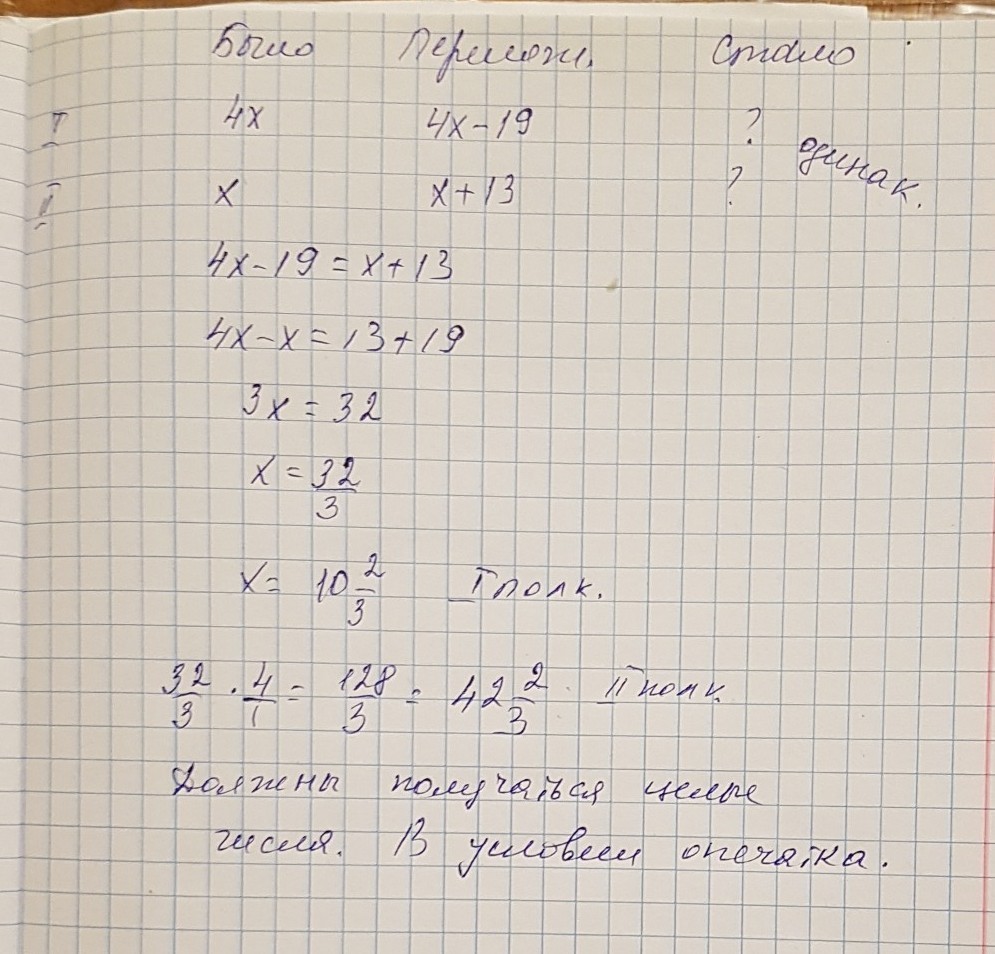 Было Перелож. Стало
I 4x 4x-19 ? одинак.
II x x+13 ?
4x-19=x+13
4x-x=13+19
3x=32
x=32/3
x= 10 2/3 I полк.
32/3 · 4/1 = 128/3 = 42 2/3 II полк.
Должны получаться целые
числа. В условии опечатка.